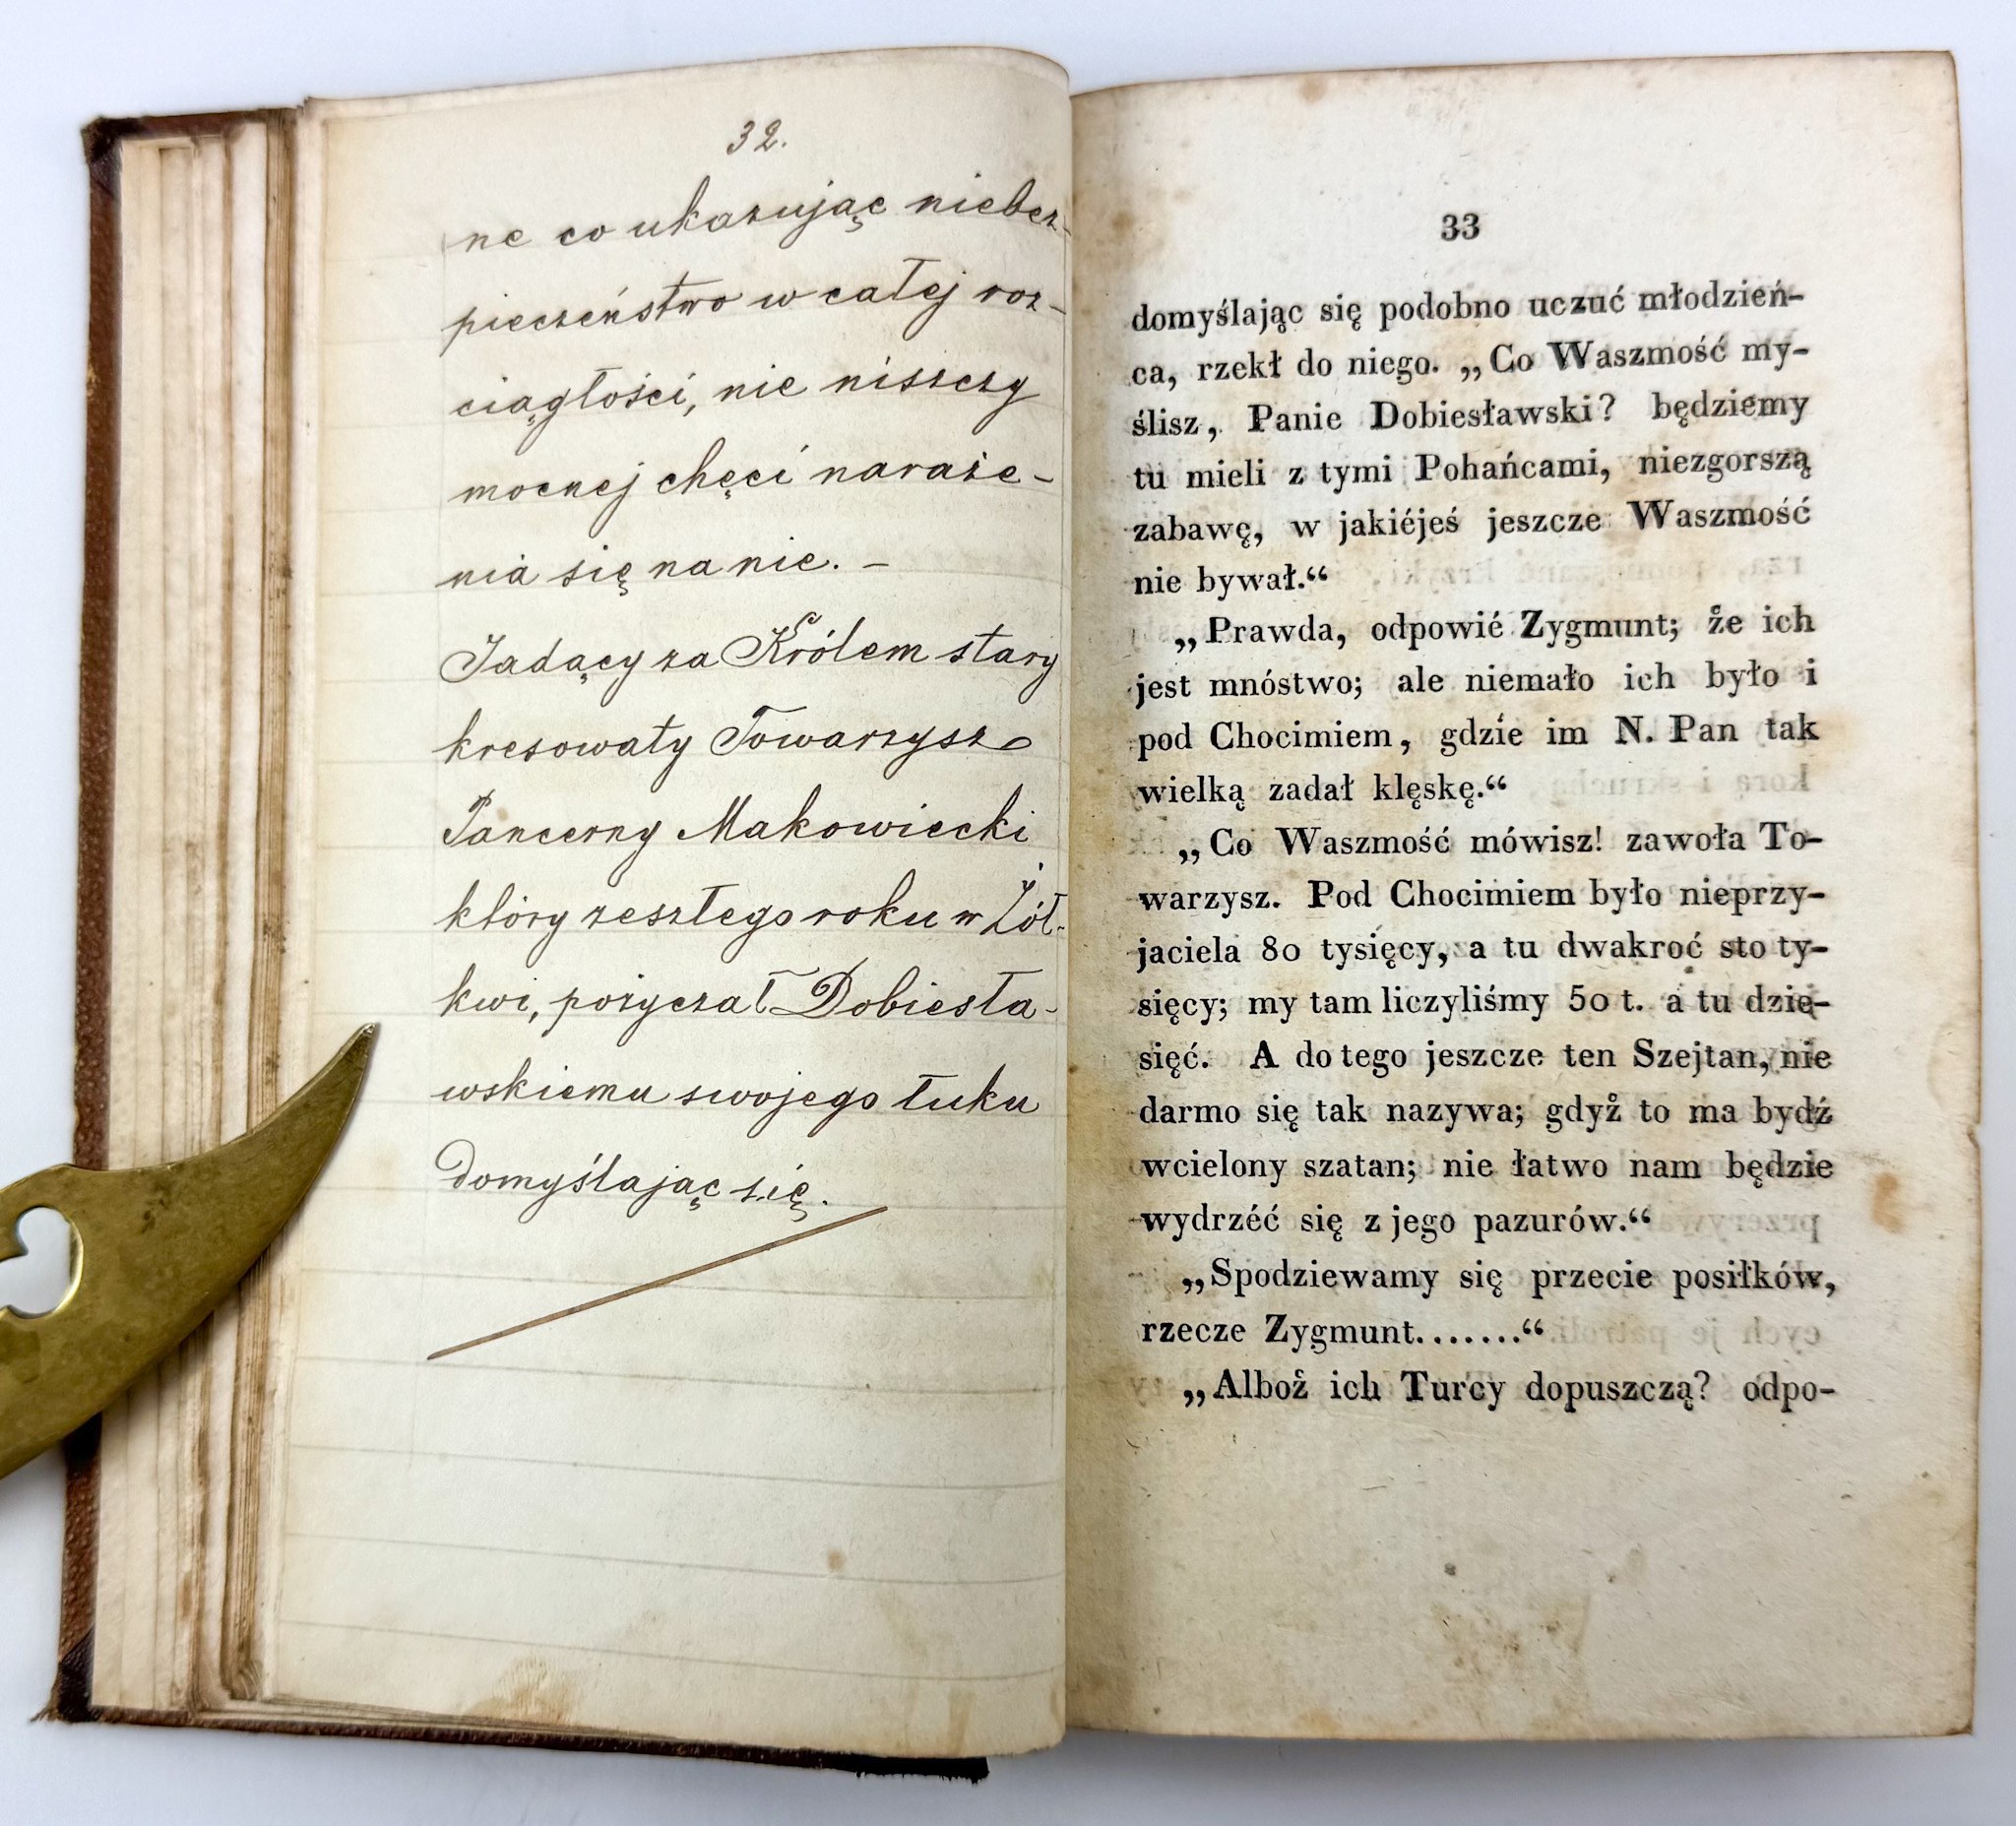 32.
ne co ukazując niebez-
pieczeństwo w całej roz-
ciągłości, nie niszczy
mocnej chęci naraże-
nia się na nie. –
Jadący za Królem stary
kresowaty Towarzysz
Pancerny Makowiecki
który zeszłego roku w Żół-
kwi, pożyczał Dobiesła-
wskiemu swojego łuku
domyślając się.
33
domyślając się podobno uczuć młodzień-
ca, rzekł do niego. „Co Waszmość my-
ślisz, Panie Dobiesławski? będziemy
tu mieli z tymi Pohańcami, niezgorszą
zabawę, w jakiéjeś jeszcze Waszmość
nie bywał.“
„Prawda, odpowié Zygmunt; że ich
jest mnóstwo; ale niemało ich było i
pod Chocimiem, gdzie im N. Pan tak
wielką zadał klęskę.“
„Co Waszmość mówisz! zawoła To-
warzysz. Pod Chocimiem było nieprzy-
jaciela 80 tysięcy, a tu dwakroć sto ty-
sięcy; my tam liczyliśmy 50 t. a tu dzie-
sięć. A do tego jeszcze ten Szejtan, nie
darmo się tak nazywa; gdyż to ma bydź
wcielony szatan; nie łatwo nam będzie
wydrzéć się z jego pazurów.“
„Spodziewamy się przecie posiłków,
rzecze Zygmunt.......“
„Alboż ich Turcy dopuszczą? odpo-